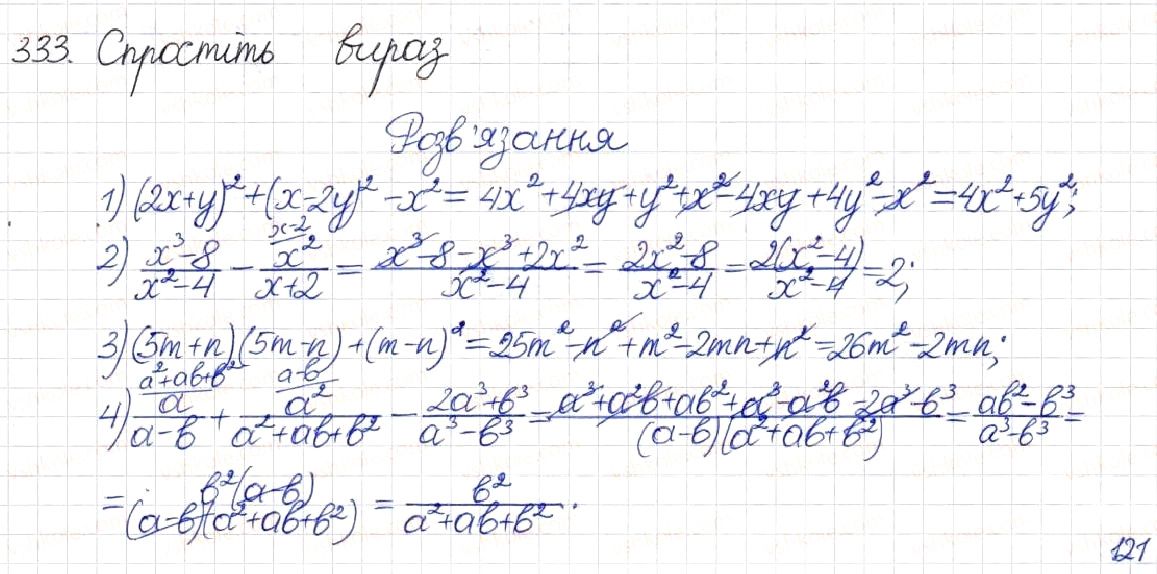 333. Спростіть вираз
Розв'язання
1) (2x+y)²+(x-2y)²-x² = 4x²+4xy+y²+x²-4xy+4y²-x² = 4x²+5y²;
2) (x³-8)/(x²-4) - x-2/ x²/(x+2) = (x³-8-x³+2x²)/(x²-4) = (2x²-8)/(x²-4) = 2(x²-4)/(x²-4) = 2;
3) (5m+n)(5m-n)+(m-n)² = 25m²-n²+m²-2mn+n² = 26m²-2mn;
4) a²+ab+b²/ a/(a-b) + a-b/ a²/(a²+ab+b²) - (2a³+b³)/(a³-b³) = (a³+a²b+ab²+a³-a²b-2a³-b³)/((a-b)(a²+ab+b²)) = (ab²-b³)/(a³-b³) =
= b²(a-b)/((a-b)(a²+ab+b²)) = b²/(a²+ab+b²).
121